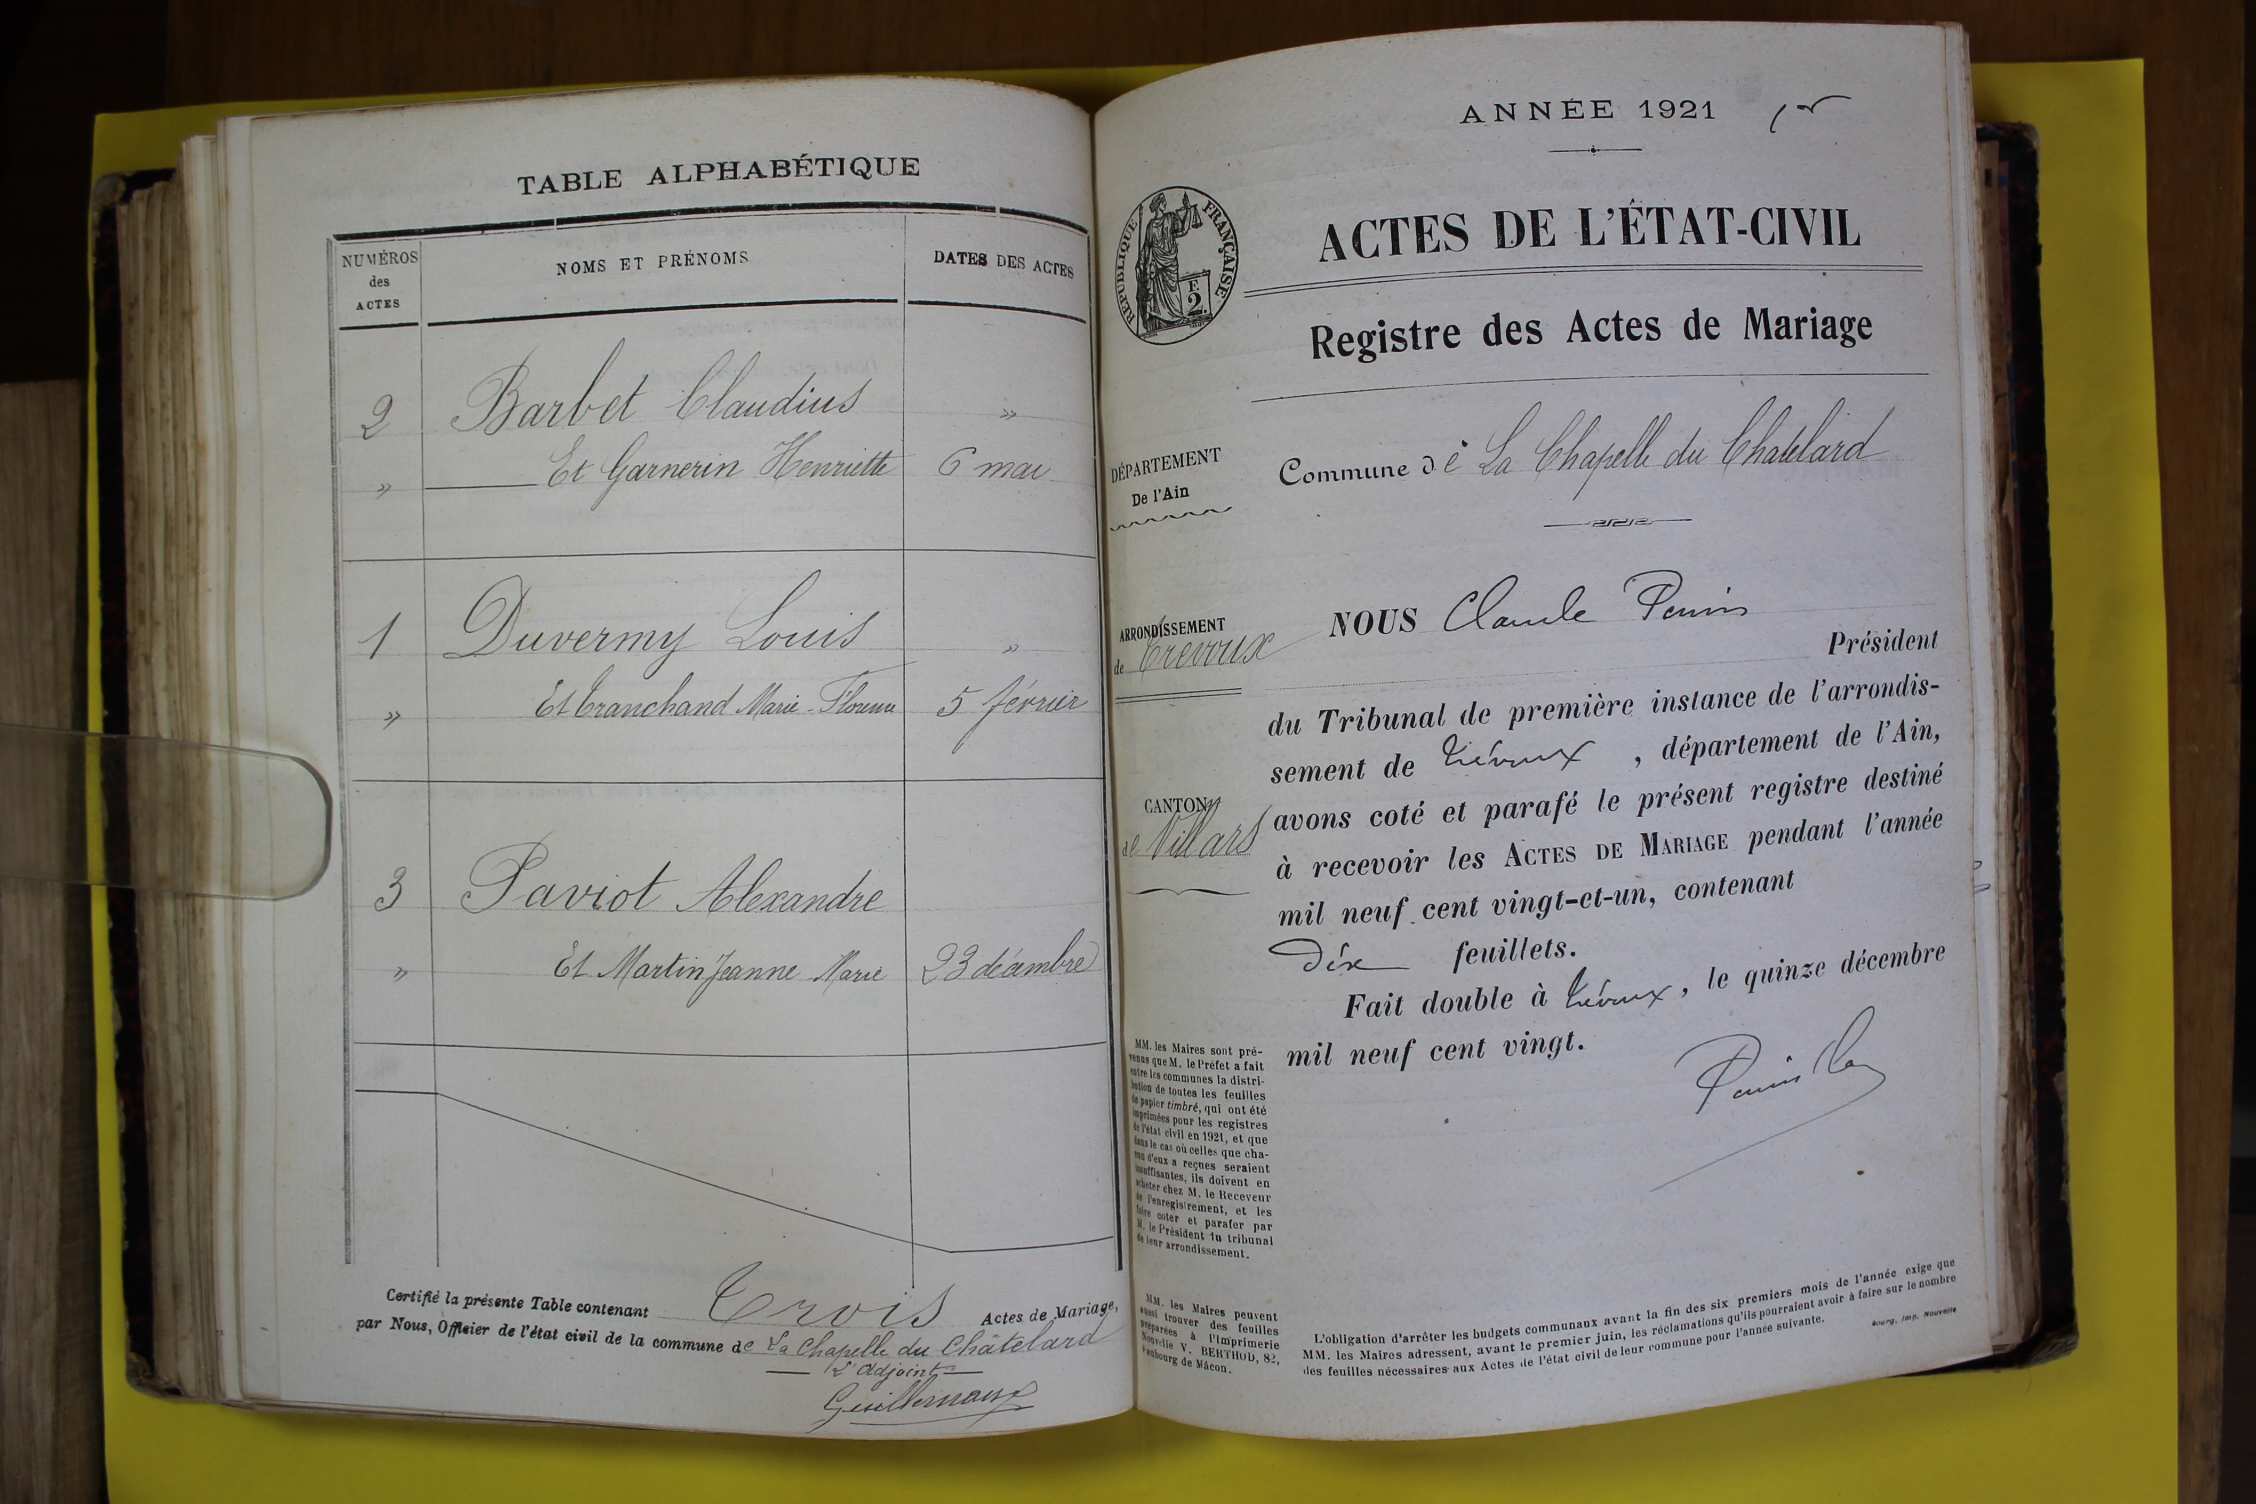 TABLE ALPHABÉTIQUE
NUMÉROS des ACTES
NOMS ET PRÉNOMS
DATES DES ACTES
2 Barbet Claudius »
» Et Garnerin Henriette 6 mai
1 Duvermy Louis »
» Et Tranchand Marie-Florine 5 février
3 Paviot Alexandre
» Et Martin Jeanne Marie 23 décembre
Certifié la présente Table contenant Trois Actes de Mariage,
par Nous, Officier de l'état civil de la commune de La Chapelle du Châtelard
L'adjoint
ANNÉE 1921
RÉPUBLIQUE FRANÇAISE
F
2
ACTES DE L'ÉTAT-CIVIL
Registre des Actes de Mariage
DÉPARTEMENT
De l'Ain
Commune de La Chapelle du Chatelard
ARRONDISSEMENT
de Trévoux
CANTON
de Villars
NOUS Claude Perrin
Président
du Tribunal de première instance de l'arrondis-
sement de Trévoux, département de l'Ain,
avons coté et parafé le présent registre destiné
à recevoir les ACTES DE MARIAGE pendant l'année
mil neuf cent vingt-et-un, contenant
Dix feuillets.
Fait double à Trévoux, le quinze décembre
mil neuf cent vingt.
MM. les Maires sont pré-
venus que M. le Préfet a fait
entre les communes la distri-
bution de toutes les feuilles
de papier timbré, qui ont été
imprimées pour les registres
de l'état civil en 1921, et que
dans le cas où celles que cha-
cun d'eux a reçues seraient
insuffisantes, ils doivent en
acheter chez M. le Receveur
de l'enregistrement, et les
faire coter et parafer par
M. le Président du tribunal
de leur arrondissement.
MM. les Maires peuvent
aussi trouver des feuilles
préparées à l'Imprimerie
Nouvelle V. BERTHOD, 82,
Faubourg de Mâcon.
L'obligation d'arrêter les budgets communaux avant la fin des six premiers mois de l'année exige que
MM. les Maires adressent, avant le premier juin, les réclamations qu'ils pourraient avoir à faire sur le nombre
des feuilles nécessaires aux Actes de l'état civil de leur commune pour l'année suivante.
Bourg, Imp. Nouvelle